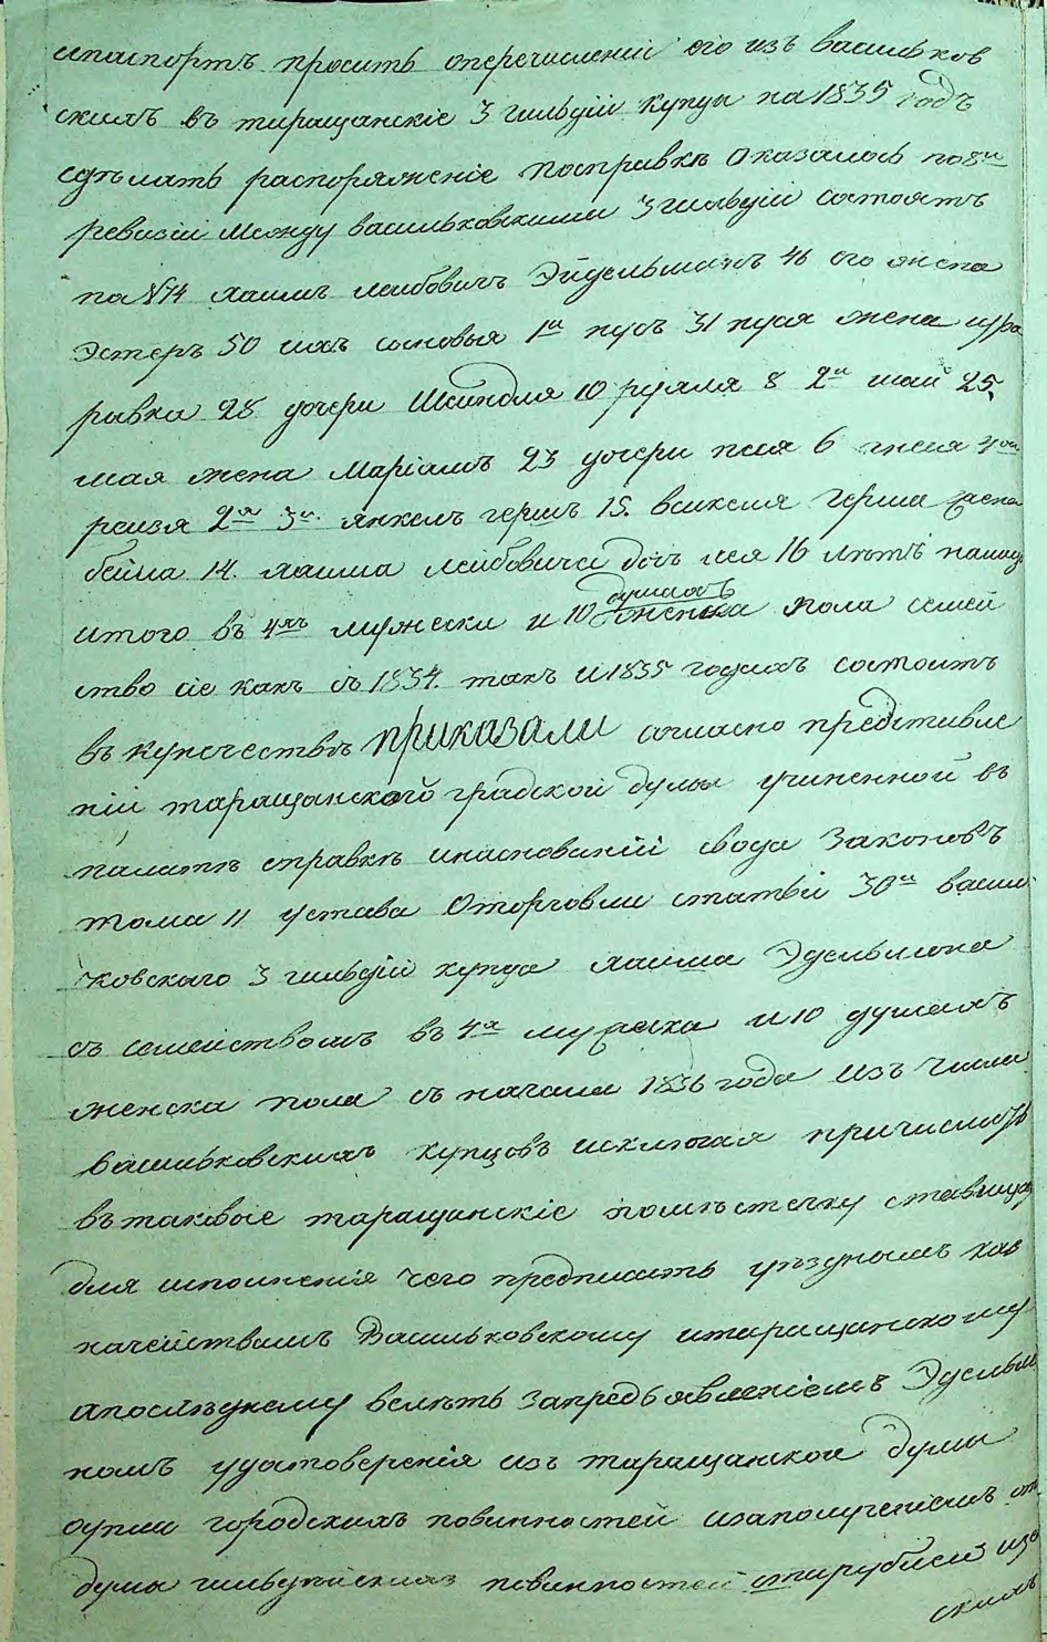 и паспортъ проситъ о перечисленіи его изъ васильков
скихъ въ таращанскіе 3 гильдіи купцы на 1835 годъ
сдѣлать распоряженіе по справкѣ оказалось по 8й
ревизіи между васильковскими 3 гильдіи состоятъ
на №74 хаимъ лейбовичъ Эйдельманъ 46 его жена
Эстеръ 50 ихъ сыновья 1й нусъ 31 нуся жена
ривка 28 дочери Шейндля 10 рухля 8 2й шай 25
шая жена Маріамъ 23 дочери песя 6 гнеся 4
рейзя 2я 3й янкель гершъ 15. янкеля герша жена
бейла 14. хаима лейбовича дочь лея 16 лѣтъ
итого въ 4хъ мужески и 10 душахъ женска пола семей
ство сіе какъ въ 1834. такъ и 1835 годахъ состоитъ
въ купечествѣ приказали согласно представле
нію таращанской градской думы учиненной въ
палатѣ справкѣ и на основаніи свода законовъ
тома 11 устава о торговли статьи 30й василь
ковскаго 3 гильдіи купца хаима Эдельмана
съ семействомъ въ 4х мужеска и 10 душахъ
женска пола съ начала 1836 года изъ числа
васильковскихъ купцовъ исключая причислить
въ таковые таращанскіе по мѣстечку ставищам
для исполненія чего предписать уѣзднымъ каз
начействамъ Васильковскому и таращанскому
а послѣднему велѣть за предъявленіемъ Эдельма
номъ удостовѣренія изъ таращанской думы
о уплатѣ городскихъ повинностей и за полученіемъ
думы гильдейскихъ повинностей
скихъ